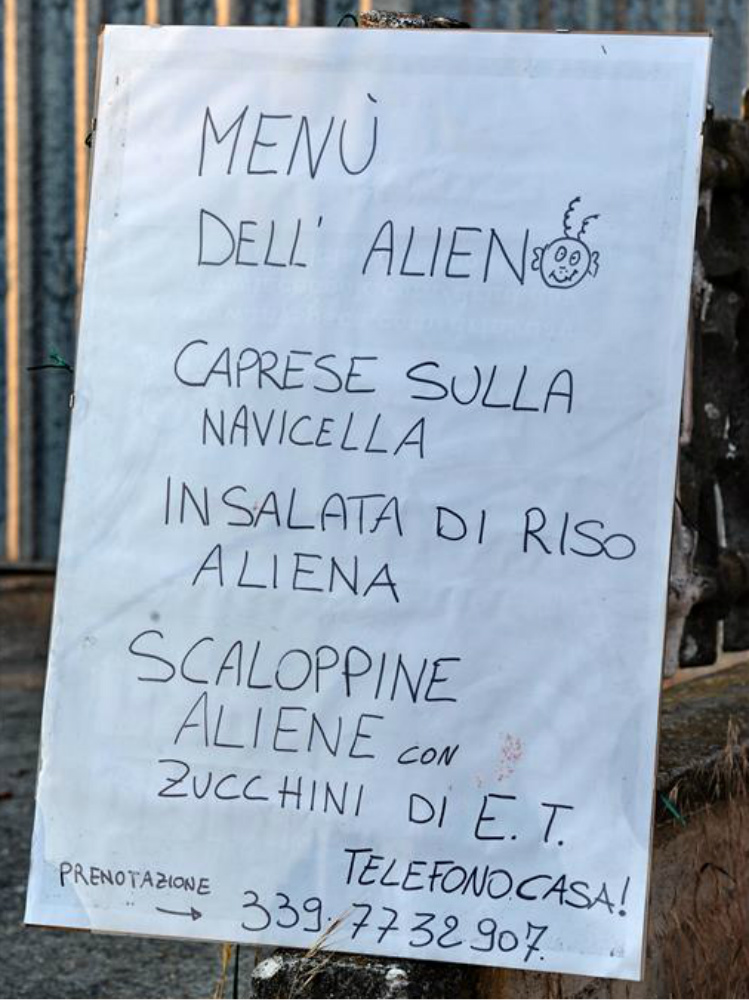 MENÙ
DELL' ALIENO
CAPRESE SULLA
NAVICELLA
INSALATA DI RISO
ALIENA
SCALOPPINE
ALIENE CON
ZUCCHINI DI E.T.
TELEFONO.CASA!
PRENOTAZIONE
→ 339.7732907.